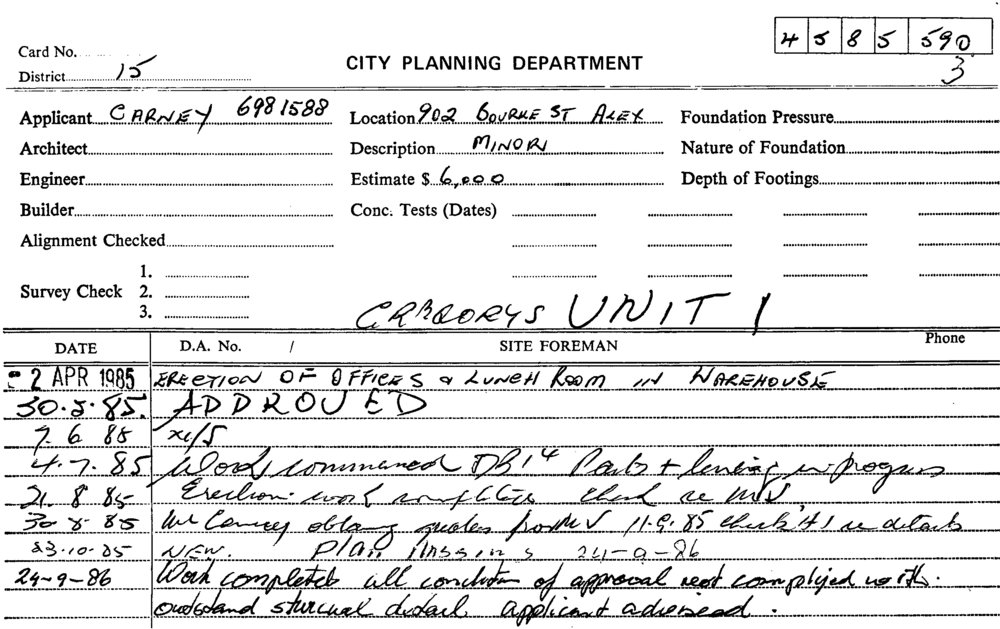 4 5 8 5 590
3
Card No.
District 15
CITY PLANNING DEPARTMENT
Applicant CARNEY 6981588 Location 902 BOURKE ST ALEX Foundation Pressure
Architect Description MINOR Nature of Foundation
Engineer Estimate $ 6,000 Depth of Footings
Builder Conc. Tests (Dates)
Alignment Checked
1.
Survey Check 2.
3.
UNIT 1
DATE D.A. No. / SITE FOREMAN Phone
2 APR 1985 ERECTION OF OFFICES & LUNCH ROOM IN WAREHOUSE
30.5.85. APPROVED
7 6 85
4.7.85 Work commenced + in progress
21 8 85 Erection work check re M/V
30 8 85 Mr Carney quotes for M V 11.9.85 check re details
23.10.85 NEW. Plan 24-9-86
24-9-86 Work completed all condition of approval not complied with.
detail applicant advised.